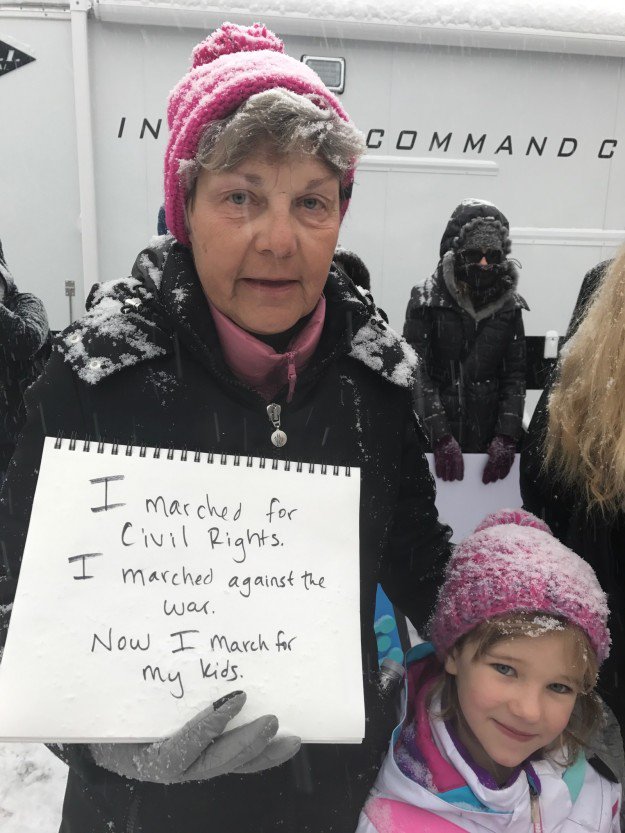 IN COMMAND C
I marched for
Civil Rights.
I marched against the
war.
Now I march for
my kids.